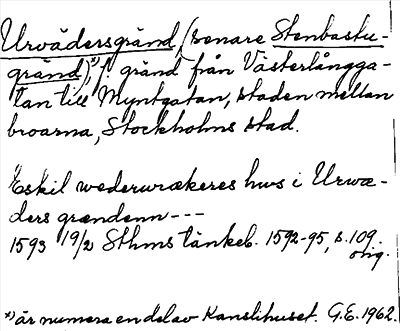 Urvädersgränd (senare Stenbastu-
gränd),*) f. gränd från Västerlångga-
tan till Myntgatan, staden mellan
broarna, Stockholms stad.
Eskil wederwrækeres hws i Urwæ-
ders grændenn ---
1593 19/2 Sthms tänkeb. 1592-95, s. 109.
orig.
*) är numera en del av Kanslihuset. G.E. 1962.